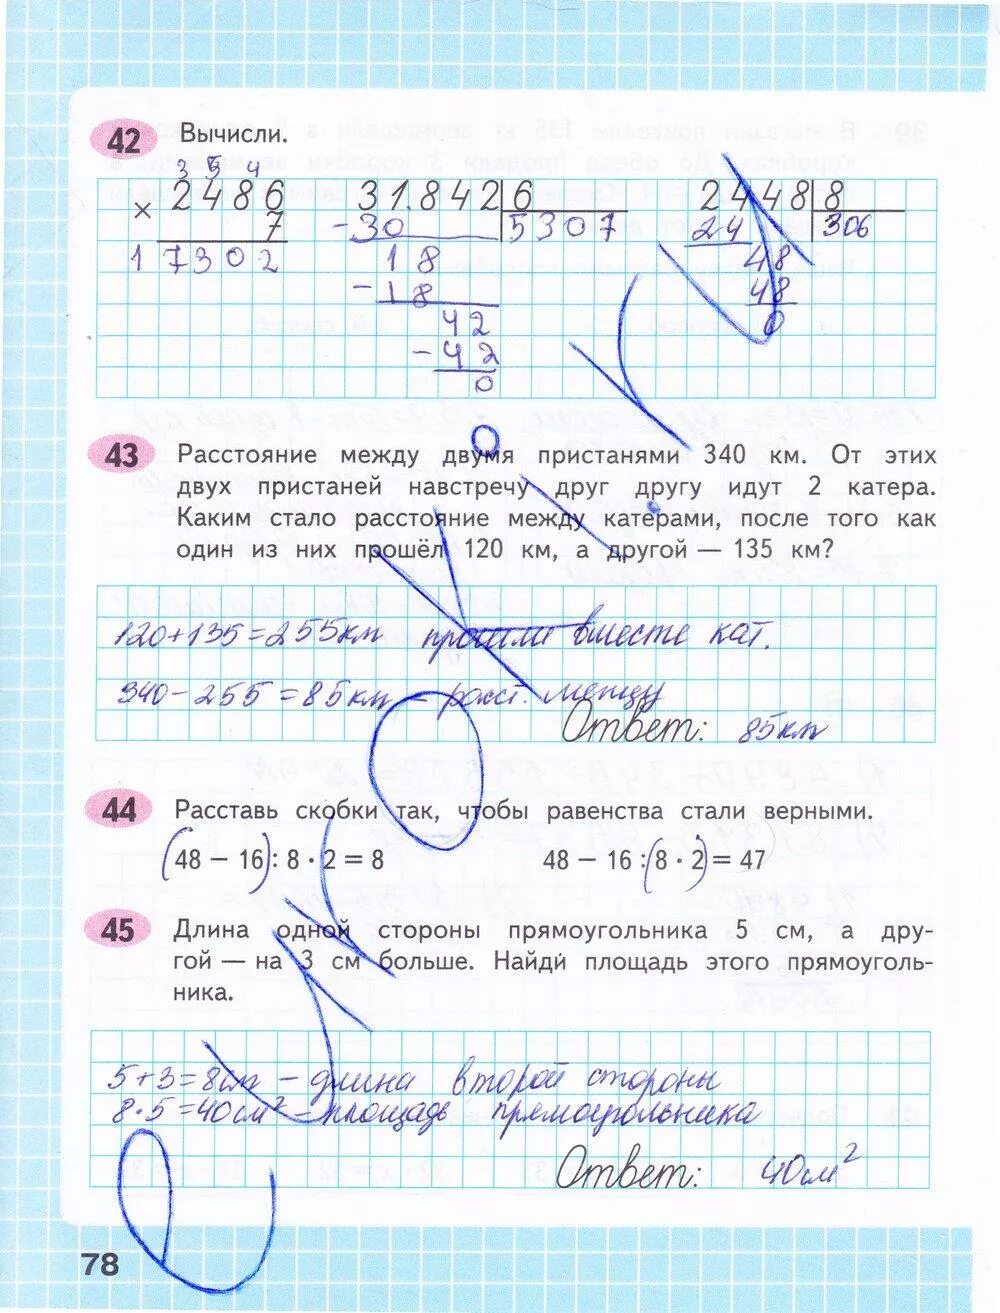 42 Вычисли.
3 5 4
× 2486
7
17302
31.842 6
-30 5307
18
-18
42
-42
0
2448 8
24 306
48
48
0
43 Расстояние между двумя пристанями 340 км. От этих
двух пристаней навстречу друг другу идут 2 катера.
Каким стало расстояние между катерами, после того как
один из них прошёл 120 км, а другой — 135 км?
120+135=255км прошли вместе кат.
340-255=85км - расст. между
Ответ: 85км
44 Расставь скобки так, чтобы равенства стали верными.
(48 − 16) : 8 · 2 = 8 48 − 16 : (8 · 2) = 47
45 Длина одной стороны прямоугольника 5 см, а дру-
гой — на 3 см больше. Найди площадь этого прямоуголь-
ника.
5+3=8см - длина второй стороны
8·5=40см² - площадь прямоугольника
Ответ: 40см²
78